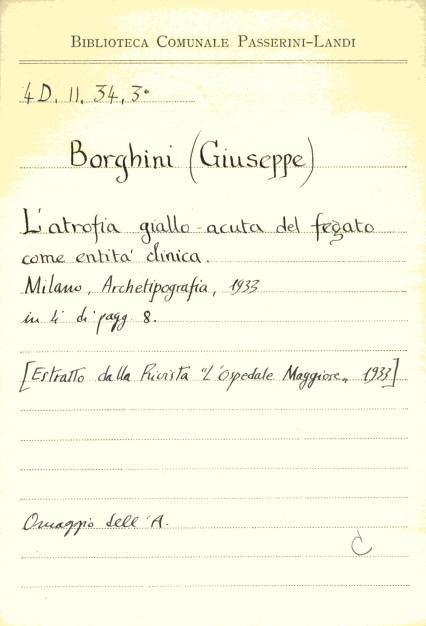 BIBLIOTECA COMUNALE PASSERINI-LANDI
4D. II. 34, 3°
Borghini (Giuseppe)
L'atrofia giallo-acuta del fegato
come entita' clinica.
Milano, Archetipografia, 1933
in 4° di pagg. 8.
[Estratto dalla Rivista "L'Ospedale Maggiore„ 1933]
Omaggio dell'A.
C